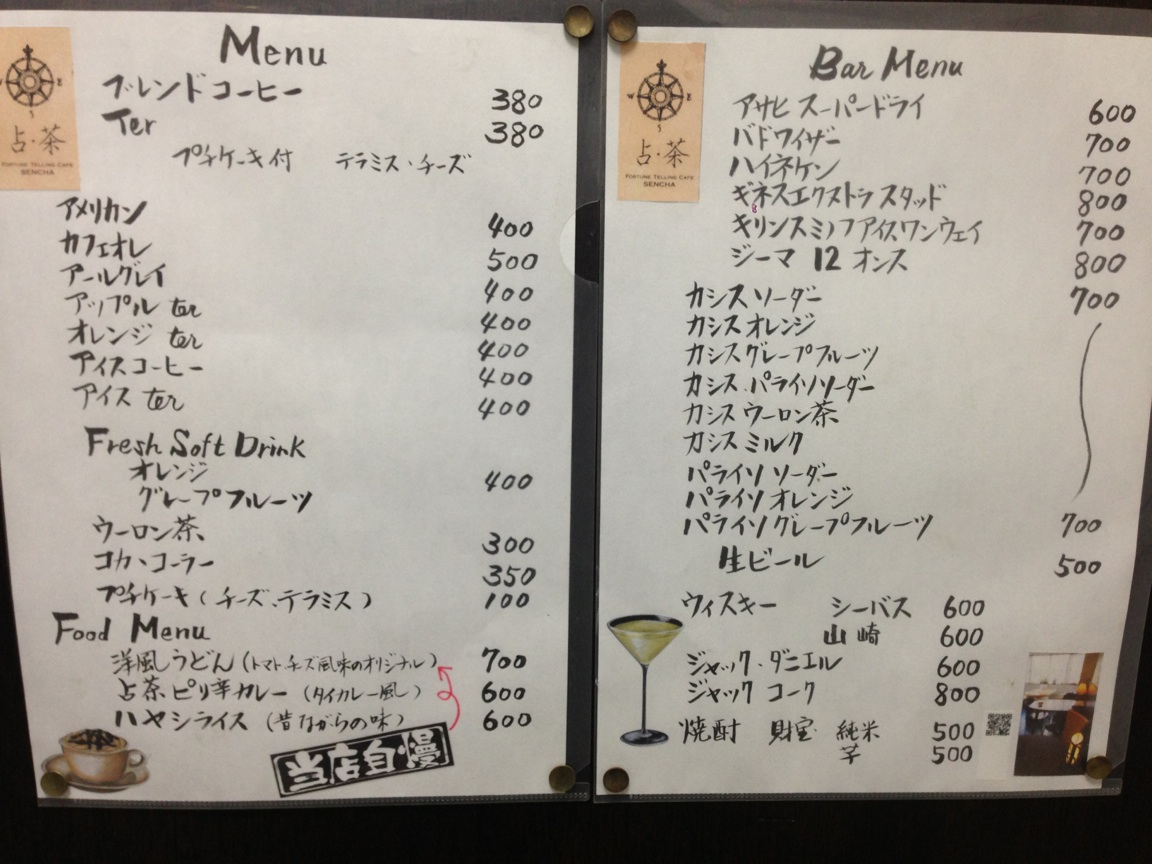 占・茶
FORTUNE TELLING CAFE
SENCHA
Menu
ブレンドコーヒー 380
Ter 380
プチケーキ付 テラミス・チーズ
アメリカン 400
カフェオレ 500
アールグレイ 400
アップル ter 400
オレンジ ter 400
アイスコーヒー 400
アイス ter 400
Fresh Soft Drink
オレンジ 400
グレープフルーツ
ウーロン茶 300
コカ・コーラー 350
プチケーキ(チーズ、テラミス) 100
Food Menu
洋風うどん(トマトチーズ風味のオリジナル) 700
占茶ピリ辛カレー(タイカレー風) 600
ハヤシライス(昔ながらの味) 600
当店自慢
占・茶
FORTUNE TELLING CAFE
SENCHA
Bar Menu
アサヒ スーパードライ 600
バドワイザー 700
ハイネケン 700
ギネスエクストラスタッド 800
キリンスミノフアイスワンウェイ 700
ジーマ 12 オンス 800
カシスソーダー 700
カシスオレンジ
カシスグレープフルーツ
カシス パライソソーダー
カシスウーロン茶
カシスミルク
パライソ ソーダー
パライソ オレンジ
パライソグレープフルーツ 700
生ビール 500
ウィスキー シーバス 600
山崎 600
ジャック・ダニエル 600
ジャックコーク 800
焼酎 財宝 純米 500
芋 500